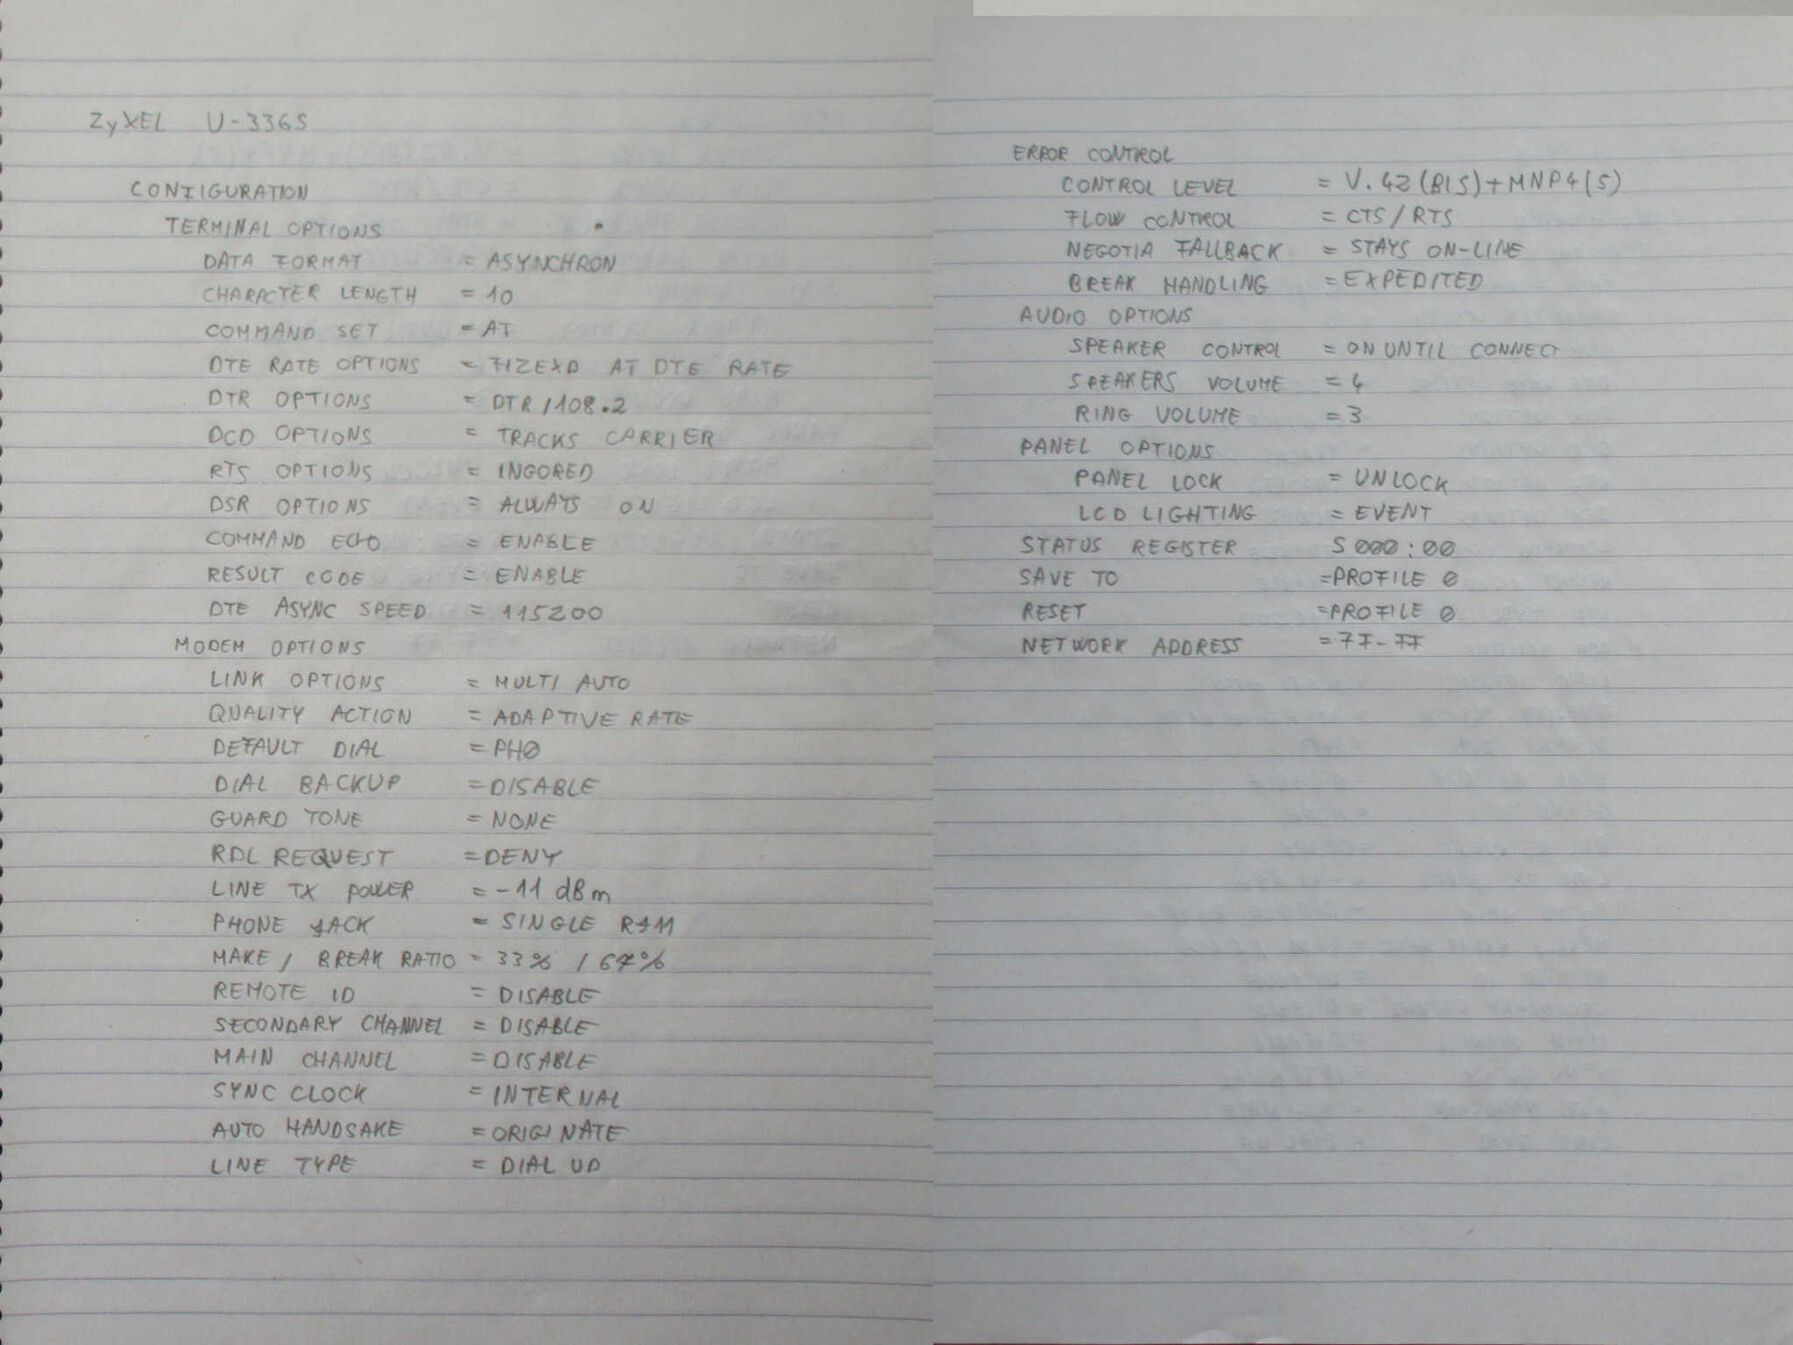 ZyXEL U-336S
CONFIGURATION
TERMINAL OPTIONS
DATA FORMAT = ASYNCHRON
CHARACTER LENGTH = 10
COMMAND SET = AT
DTE RATE OPTIONS = FIZEXD AT DTE RATE
DTR OPTIONS = DTR/108.2
DCD OPTIONS = TRACKS CARRIER
RTS OPTIONS = INGORED
DSR OPTIONS = ALWAYS ON
COMMAND ECHO = ENABLE
RESULT CODE = ENABLE
DTE ASYNC SPEED = 115200
MODEM OPTIONS
LINK OPTIONS = MULTI AUTO
QUALITY ACTION = ADAPTIVE RATE
DEFAULT DIAL = PH0
DIAL BACKUP = DISABLE
GUARD TONE = NONE
RDL REQUEST = DENY
LINE TX POWER = -11 dBm
PHONE JACK = SINGLE RJ11
MAKE / BREAK RATIO = 33% / 67%
REMOTE ID = DISABLE
SECONDARY CHANNEL = DISABLE
MAIN CHANNEL = DISABLE
SYNC CLOCK = INTERNAL
AUTO HANDSAKE = ORIGINATE
LINE TYPE = DIAL UP
ERROR CONTROL
CONTROL LEVEL = V.42(BIS)+MNP4(5)
FLOW CONTROL = CTS/RTS
NEGOTIA FALLBACK = STAYS ON-LINE
BREAK HANDLING = EXPEDITED
AUDIO OPTIONS
SPEAKER CONTROL = ON UNTIL CONNECT
SPEAKERS VOLUME = 4
RING VOLUME = 3
PANEL OPTIONS
PANEL LOCK = UNLOCK
LCD LIGHTING = EVENT
STATUS REGISTER S000:00
SAVE TO =PROFILE 0
RESET =PROFILE 0
NETWORK ADDRESS = 7F-FF